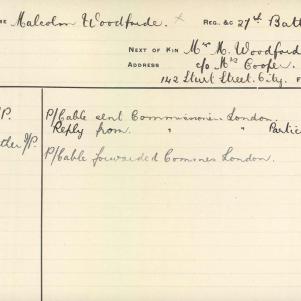 RE Malcolm Woodfride. x REG. &C 27th Batt
NEXT OF KIN Mrs M. Woodfrid
ADDRESS c/o Mrs Cooper.
142 Sturt Street. City. F
/P. P/Cable sent Commissioner London.
Reply from " " Partic
tter P/P.
P/Cable forwarded Commrs London.